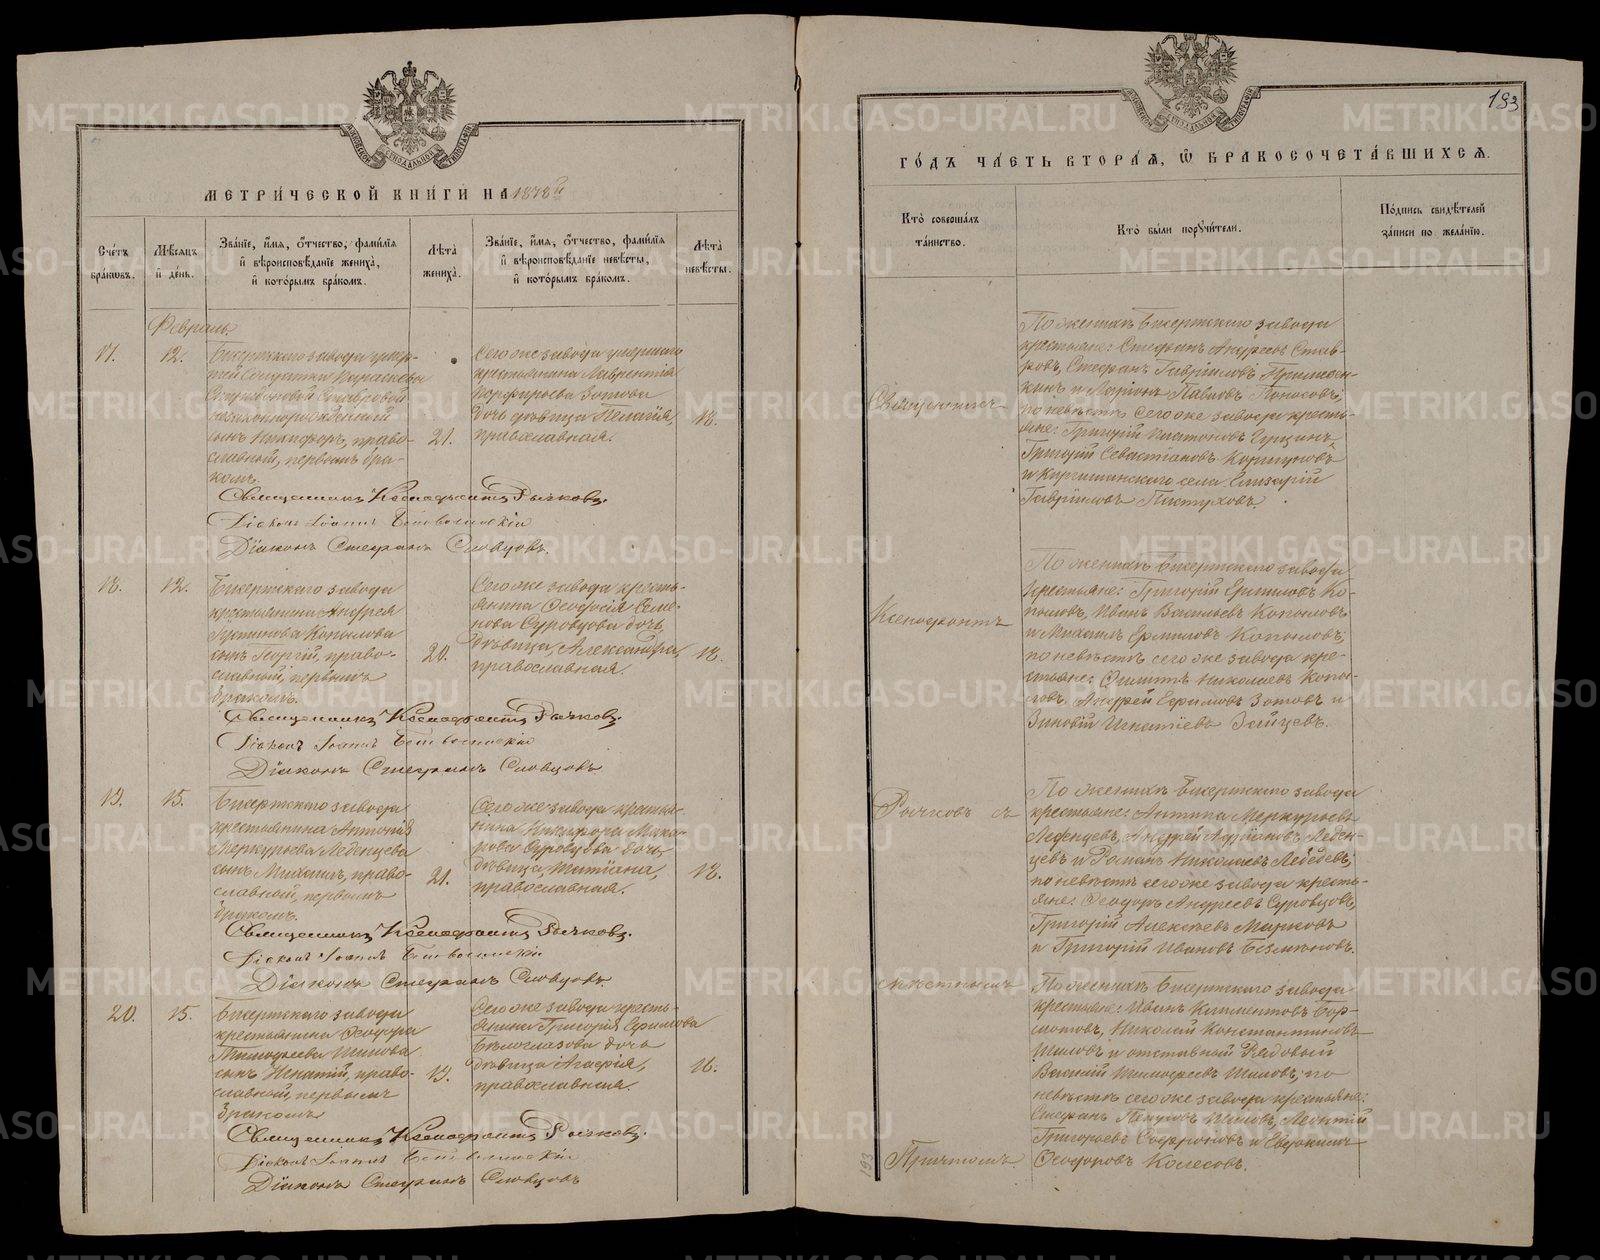 МЕТРИ́ЧЕСКОЙ КНИ́ГИ НА 1878й
Сче́тъ бра́кѡвъ.
Мѣ́сяцъ и҆ де́нь.
Зва́нїе, и҆́мѧ, ѻ҆́тчество, фами́лїѧ и҆ вѣроисповѣ́данїе жениха̀, и҆ кото́рымъ бра́комъ.
Лѣ́та жениха̀.
Зва́нїе, и҆́мѧ, ѻ҆́тчество, фами́лїѧ и҆ вѣроисповѣ́данїе невѣ́сты, и҆ кото́рымъ бра́комъ.
Лѣ́та невѣ́сты.
Февраль.
17.
12.
Бисертскаго завода умер-
шей Солдатки Параскевы
Ставровой
незаконнорожденный
сынъ Никифоръ, право-
славный, первымъ бра-
комъ.
21.
Сегоже завода умершаго
крестьянина Лаврентія
Порфирьева Зотова
дочь девица Пелагія,
православная.
18.
Священникъ Ксенофонтъ Рычковъ.
Діаконъ Іоаннъ
Діаконъ Стефанъ Словцовъ.
18.
12.
Бисертскаго завода
крестьянина Андрея
Устинова Копылова
сынъ Георгій, право-
славный, первымъ
бракомъ.
20.
Сегоже завода кресть-
янина Феодосія Семе-
нова Суровцова дочь
девица, Александра,
православная.
18.
Священникъ Ксенофонтъ Рычковъ.
Діаконъ Іоаннъ
Діаконъ Стефанъ Словцовъ
19.
15.
Бисертскаго завода
крестьянина
Меркурьева Леденцева
сынъ Михаилъ, право-
славный, первымъ
бракомъ.
21.
Сегоже завода крестья-
нина Никифора Мака-
рова Суровцова дочь
девица, Татіана,
православная.
18.
Священникъ Ксенофонтъ Рычковъ.
Діаконъ Іоаннъ
Діаконъ Стефанъ Словцовъ.
20.
15.
Бисертскаго завода
крестьянина Феодора
Тимофеева Шилова
сынъ Игнатій, право-
славный, первымъ
бракомъ
19.
Сегоже завода кресть-
янина Григорія Ефимова
Белоглазова дочь
девица Агафія,
православная.
16.
Священникъ Ксенофонтъ Рычковъ.
Діаконъ Іоаннъ
Діаконъ Стефанъ Словцовъ
193
ГО́ДЪ ЧА́СТЬ ВТОРА́Я, Ѡ҆ БРАКОСОЧЕТА́ВШИХСЯ.
Кто̀ соверша́лъ та́инство.
Кто̀ бы́ли порꙋчи́тели.
По́дпись свидѣ́телей за́писи по жела́нїю.
Священникъ
Ксенофонтъ
Рычковъ съ
местнымъ
Причтомъ.
По женихѣ Бисертскаго завода
крестьяне: Стефанъ Андреевъ Став-
ровъ, Стефанъ Гавриловъ
и Ларіонъ Павловъ Поносовъ;
по невѣстѣ сегоже завода кресть-
яне: Григорій
Григорій Севастьяновъ Коршуновъ
и Киргишанскаго села Елизарій
Гавриловъ Пастуховъ.
По женихѣ Бисертскаго завода
крестьяне: Григорій Ермиловъ Ко-
пыловъ, Иванъ Васильевъ Копыловъ
и Михаилъ Ермиловъ Копыловъ;
по невѣстѣ сегоже завода кре-
стьяне: Филиппъ Николаевъ Копы-
ловъ, Андрей Ефимовъ Зотовъ и
Зиновій Игнатіевъ Зайцевъ.
По женихѣ Бисертскаго завода
крестьяне: Антипа Меркурьевъ
Леденцевъ, Андрей Адріановъ Леден-
цевъ и Романъ Николаевъ Лебедевъ;
по невѣстѣ сегоже завода кресть-
яне: Феодоръ Андреевъ Суровцовъ,
Григорій Алексѣевъ Марковъ
и Григорій Ивановъ Безменовъ.
По женихѣ Бисертскаго завода
крестьяне: Иванъ Климентовъ Бор-
мотовъ, Николай Константиновъ
Шиловъ и отставный Рядовый
Василій Тимофеевъ Шиловъ; по
невѣстѣ сегоже завода крестьяне:
Стефанъ Леонтій
Григорьевъ Софроновъ и Евдокимъ
Феодоровъ Колесовъ.
193
METRIKI.GASO-URAL.RU